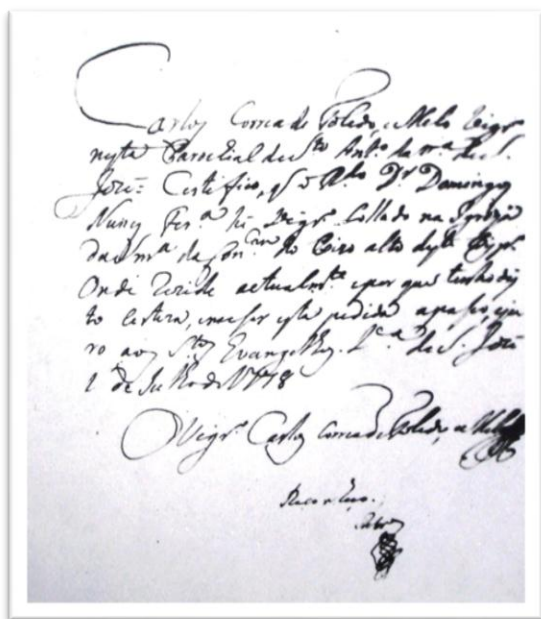 Carlos Correa de Toledo, e Melo Vigr.º
nesta Parochial de S.to Ant.º da v.ª de S.
Jozé: Certifico, q̃ o R.do D.r Domingos
Nunes Fer.ª he Vigr.º Collado na Igreja
da
Onde rezide actualm.te e por que tenho dis
to certeza, e me ser esta pedida a passo, e ju
ro aos S.tos Evangelhos. V.ª de S. Jozé
1 de Julho de 1778
O Vigr.º Carlos Correa de Toledo, e Melo